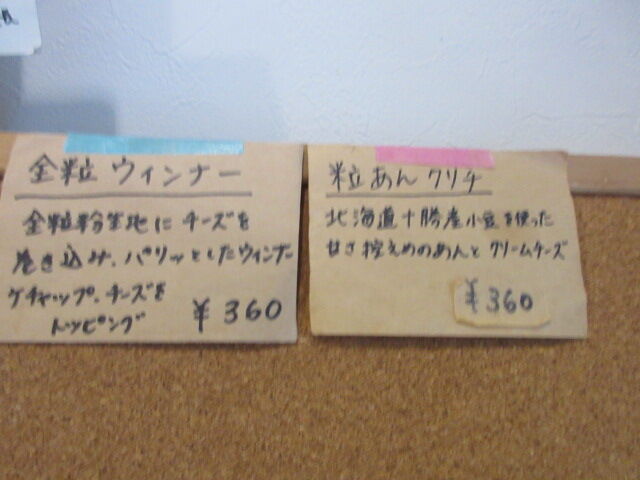 全粒ウィンナー
全粒粉生地にチーズを
巻き込み、パリッとしたウィンナー
ケチャップ、チーズを
トッピング
￥360
粒あんクリチ
北海道十勝産小豆を使った
甘さ控えめのあんとクリームチーズ
￥360